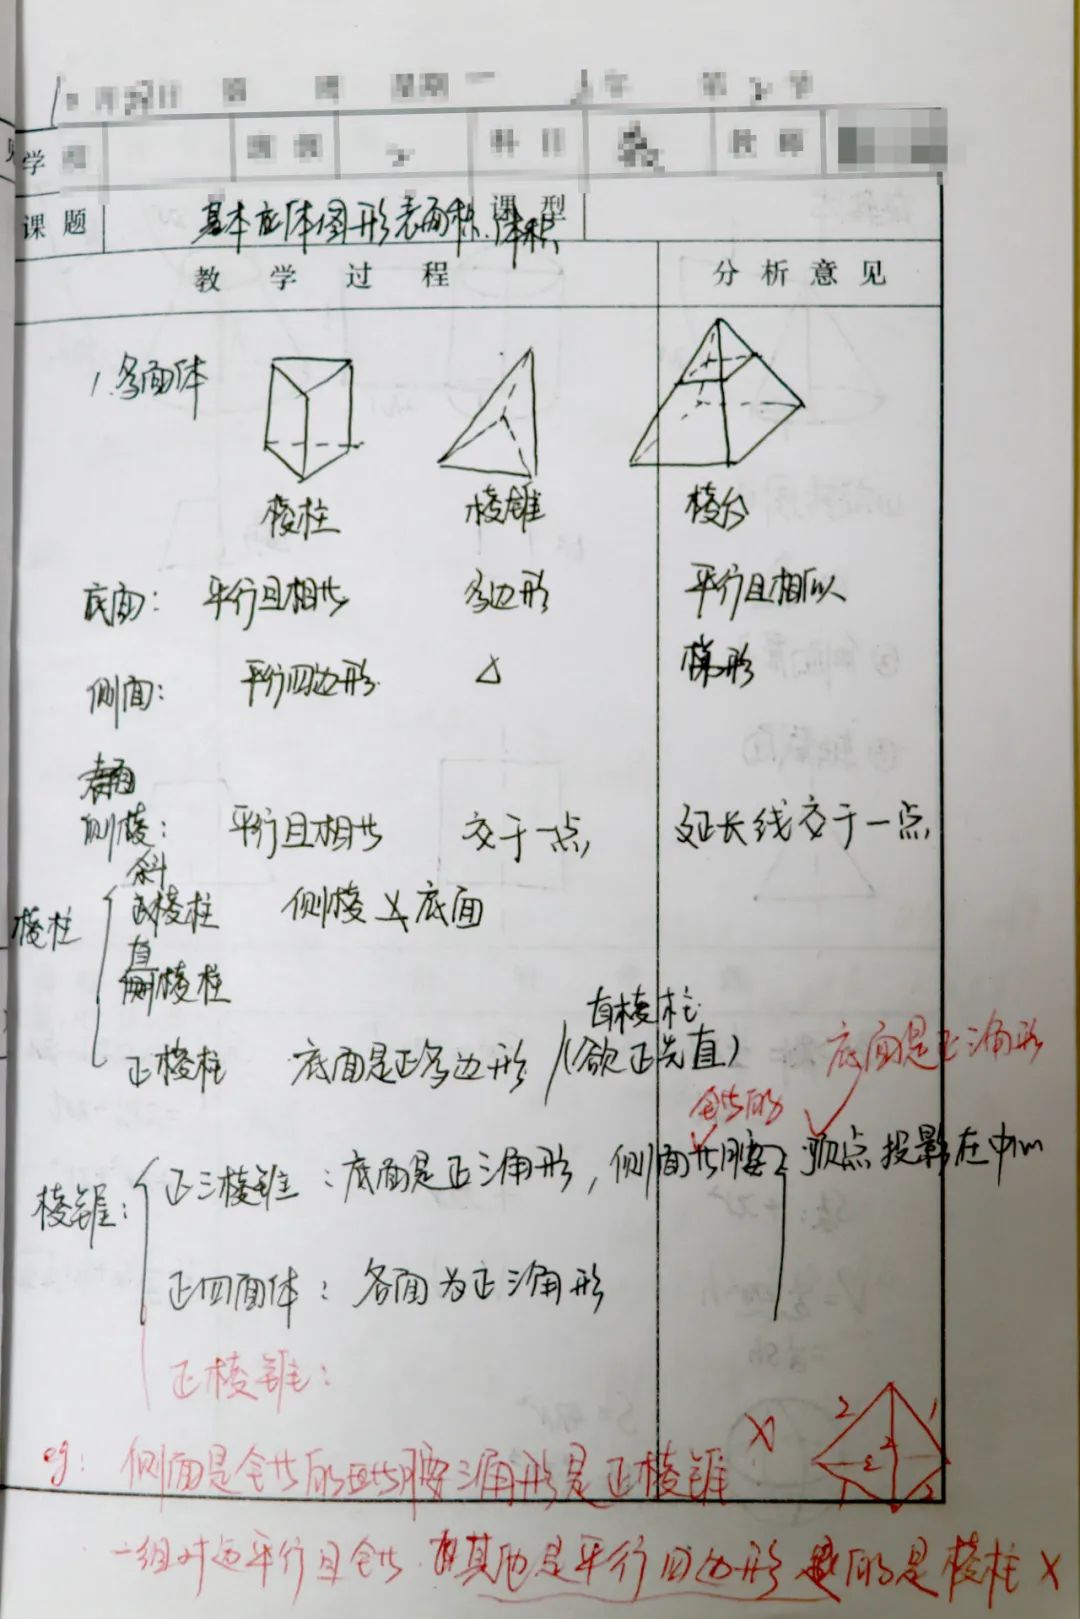 学
课题 基本立体图形表面积.体积 课型
教学过程 分析意见
1.多面体
棱柱 棱锥 棱台
底面: 平行且相等 多边形 平行且相似
侧面: 平行四边形 △ 梯形
侧棱: 平行且相等 交于一点 延长线交于一点
斜
棱柱 棱柱 侧棱 底面
直
棱柱
直棱柱
正棱柱 底面是正多边形 (欲正先直) 底面是正三角形
全等的
棱锥: 正三棱锥: 底面是正三角形, 侧面等腰 顶点投影在中心
正四面体: 各面为正三角形
正棱锥:
eg: 侧面是全等的等腰三角形是正棱锥 X
2 1 2 2 1 2
一组对边平行且全等.其他是平行四边形的是棱柱 X